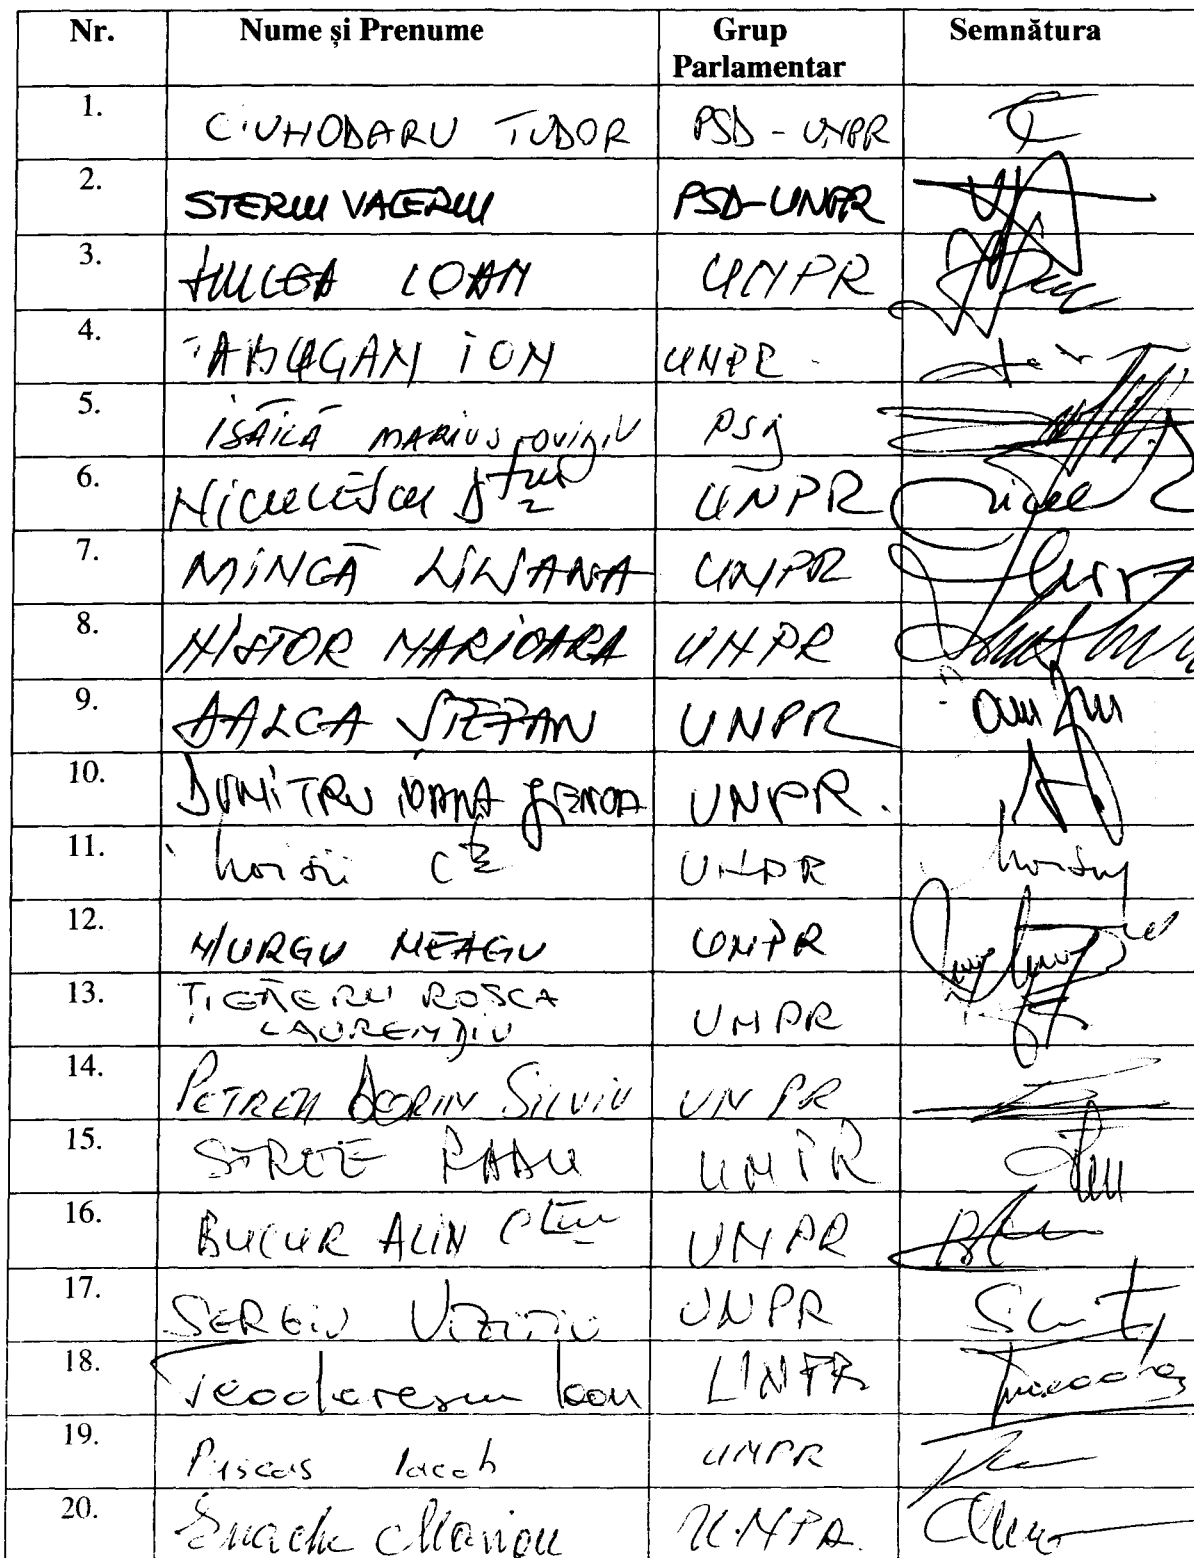 Nr. Nume și Prenume Grup Parlamentar Semnătura
1. CIUHODARU TUDOR PSD - UNPR
2. STERIU VALERIU PSD-UNPR
3. HULEA IOAN UNPR
4. TABUGAN ION UNPR
5. ISĂILĂ MARIUS OVIDIU PSD
6. NICULESCU D-tru UNPR
7. MINCĂ LILIANA UNPR
8. NISTOR MARIOARA UNPR
9. DALCA ȘTEFAN UNPR
10. DUMITRU IOANA JENICA UNPR.
11. Moisii C-tin UNPR
12. MURGU NEAGU UNPR
13. ȚIGĂERU ROȘCA
LAURENȚIU UNPR
14. PETREA DORIN SILVIU UNPR
15. STROE RADU UNPR
16. BUCUR ALIN UNPR
17. SERGIU VIZITIU UNPR
18. Teodorescu Ioan UNPR
19. Pușcaș Iacob UNPR
20. Enache Marian UNPR